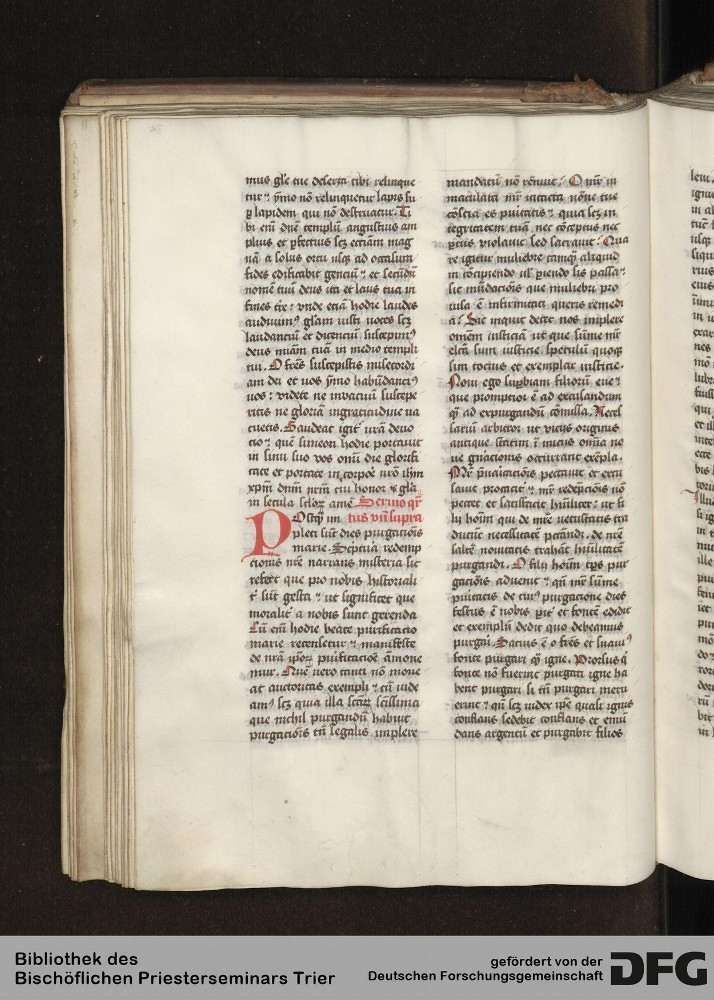 mus głe tue deserta tibi relinque
tur ⁊ ȳmo nō relinquetur lapis su
ꝑ lapidem qui nō destruatur. Ti
bi em̄ dn̄e templū angustius am
plius et ꝑfectius scꝫ eciam mag
nā a solus ortu usqꝫ ad occasum
fides edificabit genciū ⁊ et secūdū
nomē tuū deus ita et laus tua in
fines tr̄e: vnde etiā hodie laudes
audiuimꝰ głam iusti uoces scꝫ
laudanciū et dicenciū suscepimꝰ
deus mīam tuā in medio templi
tui. O fr̄es suscepistis misericordi
am dei et uos ȳmo habūdanciꝰ
uos: videte ne inuacuū suscepe
ritis ne gloriā ingratitudine ua
cuetis. Gaudeat igit᷑ ur̄a deuo
cio ⁊ quē simeon hodie portauit
in sinu suo vos omī die glorifi
cate et portate in corpoꝛe nr̄o ihm̄
xpm̄ dnm̄ nrm̄ cui honor ⁊ gła
in secula sclōꝝ amē Sermo qr̄
POstqꝫ im tus vn̄ supra
pleti sūt dies purgaciōis
marie. Sc̄ptura redemp
cionis nr̄e narrans misteria sic
refert que pro nobis historiali
t᷑ sūt gesta ⁊ ut significet que
moralit᷑ a nobis sunt gerenda
Cū em̄ hodie beate purificacio
marie recensetur ⁊ manifeste
de nr̄a ip̄oꝝ puificacioē āmone
mur. Quē uero tanti nō moue
at auctoritas exempli ⁊ cū uide
amꝰ scꝫ quia illa sctāꝝ scīssima
que nichil purgandū habuit
purgaciōis tn̄ legalis implere
mandatū nō rēnuit. O mr̄ in
maculata mr̄ intacta nōne tue
cōscia es puritatis ⁊ quia scꝫ in
tegritatem tuā nec cōceptus nec
ꝑtus violauit sed sacrauit? Qua
re igitur muliebre tamqꝫ aliquid
in cōcipiendo ul᷑ ꝑiendo sis passa ⁊
sic mūdaciōis que muliebri pro
uisa ē infirmitati queris remedi
ā? Sic inquit decet nos implere
omēm iusticiā ut que sūme mr̄
elcā sum iusticie speculū quoqꝫ
sim tocius et exemplar iusticie.
Noui ego suꝑbiam filiorū eue ⁊
que promptior ē ad excusandum
qꝫ ad expurgandū cōmissa. Necess
ariū arbitror ut viciis originis
antique statim ī iniciis omīa no
ue gn̄acionis occurrant exēpla.
Mr̄ p̄uaricaciōis peccauit et excu
sauit procacit᷑ ⁊ mr̄ redēpciōis nō
peccet et satisfacit hūiliter: ut fi
lii hoīm qui de mr̄e uetustatis tra
ducūt necessitatē peccandi. de mr̄e
saltē nouitatis trahāt hūilitatē
purgandi. O filii hoīm tp̄s pur
gaciōis aduenit ⁊ qn̄ mr̄ sūme
puritatis de cuiꝰ purgacione dies
festus ē nobis ꝑit᷑ et fontē edidit
et exemplū dedit quo debeamus
purgari. Sacius ē o fr̄es et suauiꝰ
fonte purgari qꝫ igne. Prorsus q̄
fonte nō fuerint purgati igne ha
bent purgari si tn̄ purgari meru
erint ⁊ qn̄ scꝫ iudex ip̄e quasi ignis
conflans sedebit conflans et emū
dans argentū et purgabit filios
Bibliothek des
Bischöflichen Priesterseminars Trier
gefördert von der
Deutschen Forschungsgemeinschaft
DFG